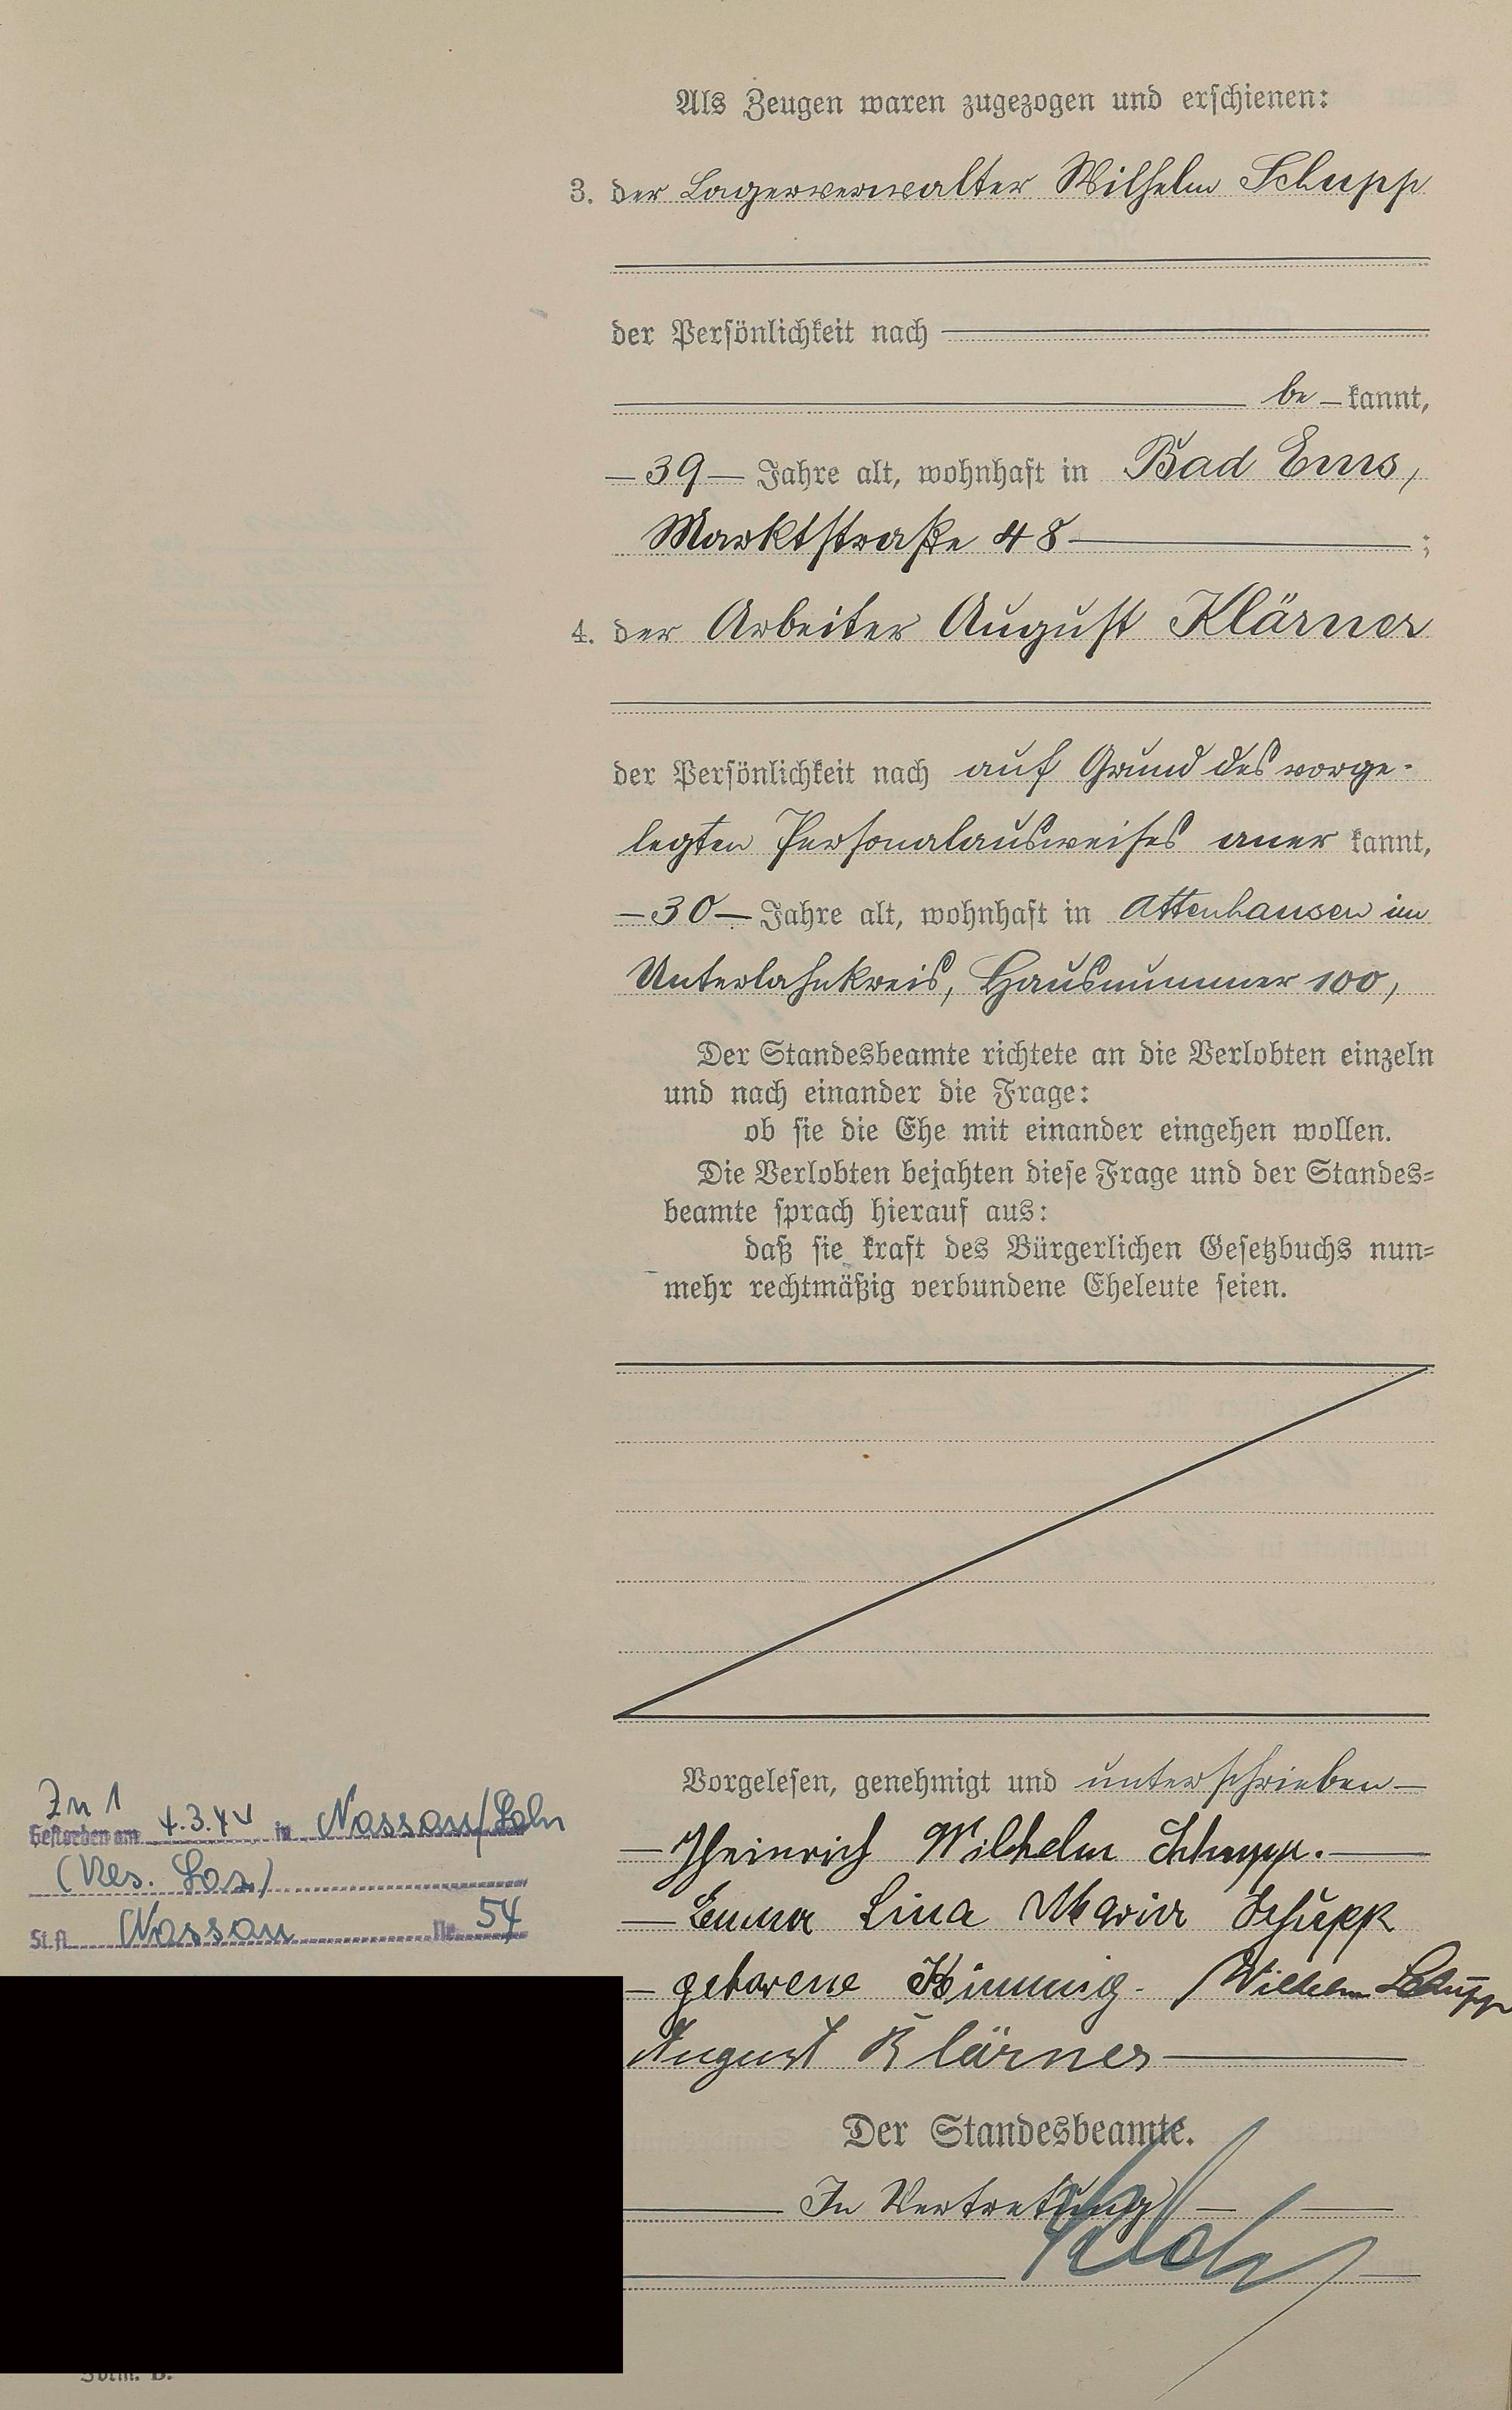 Als Zeugen waren zugezogen und erschienen:
3. der Lagerverwalter Wilhelm Schupp
der Persönlichkeit nach
be – kannt,
– 39 – Jahre alt, wohnhaft in Bad Ems,
Marktstraße 48 – ;
4. der Arbeiter August Klärner
der Persönlichkeit nach auf Grund des vorge-
legten Personalausweises aner kannt,
– 30 – Jahre alt, wohnhaft in Attenhausen im
Unterlahnkreis, Hausnummer 100,
Der Standesbeamte richtete an die Verlobten einzeln
und nach einander die Frage:
ob sie die Ehe mit einander eingehen wollen.
Die Verlobten bejahten diese Frage und der Standes-
beamte sprach hierauf aus:
daß sie kraft des Bürgerlichen Gesetzbuchs nun-
mehr rechtmäßig verbundene Eheleute seien.
Vorgelesen, genehmigt und unterschrieben –
– Heinrich Wilhelm Schupp. –
– Emma Lina Maria Schupp
– geborene Kimmig. Wilhelm Schupp
August Klärner –
Der Standesbeamte.
– In Vertretung –
Zu 1
Gestorben am 4.3.44 in Nassau/Lahn
(Res. Laz.)
St.A. Nassau Nr. 54